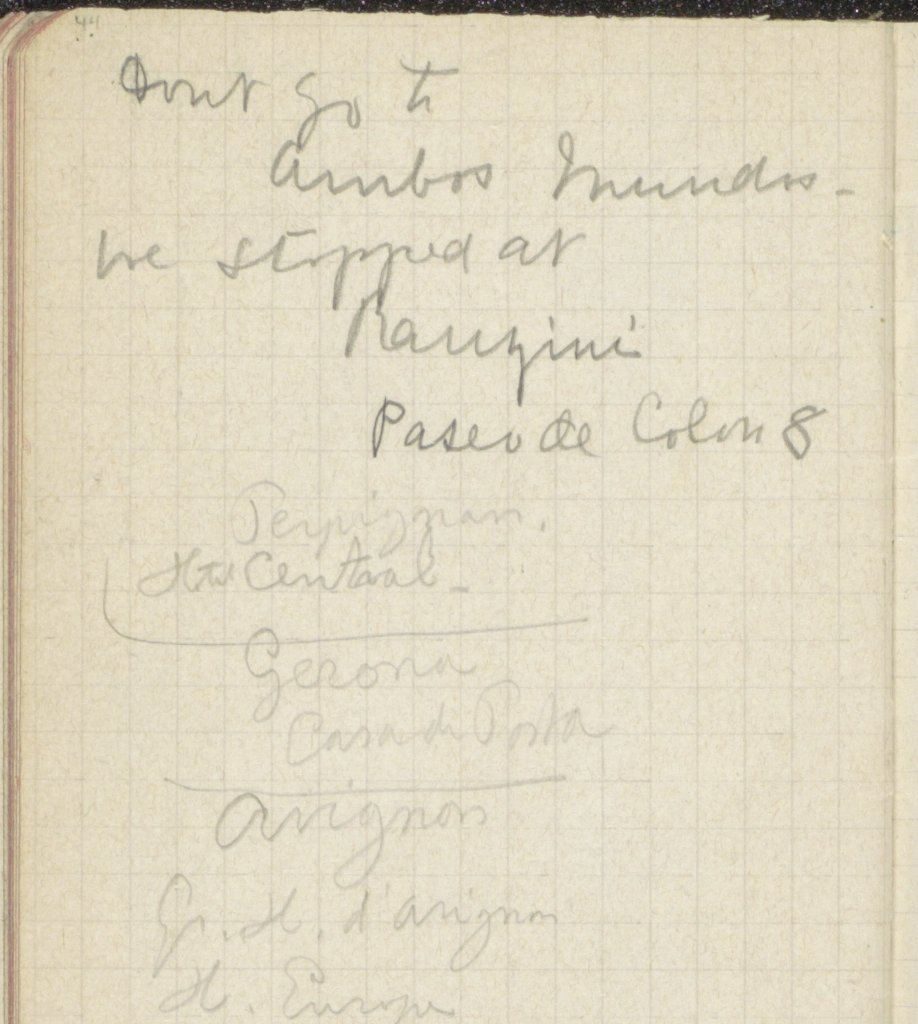 44
Dont go to
Ambos Mundos -
we stopped at
Ranzini
Paseo de Colon 8
Perpignan.
Htel Central -
Gerona
Casa de Posta
Avignon
Gr. H. d'Avignon
H. Europe